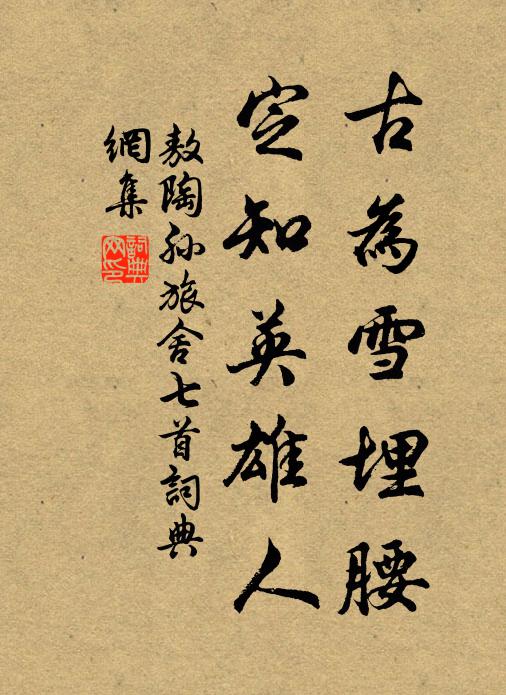 古為雪埋腰
定知英雄人
敖陶孙旅舍七首詞典
網集
詞典
网印